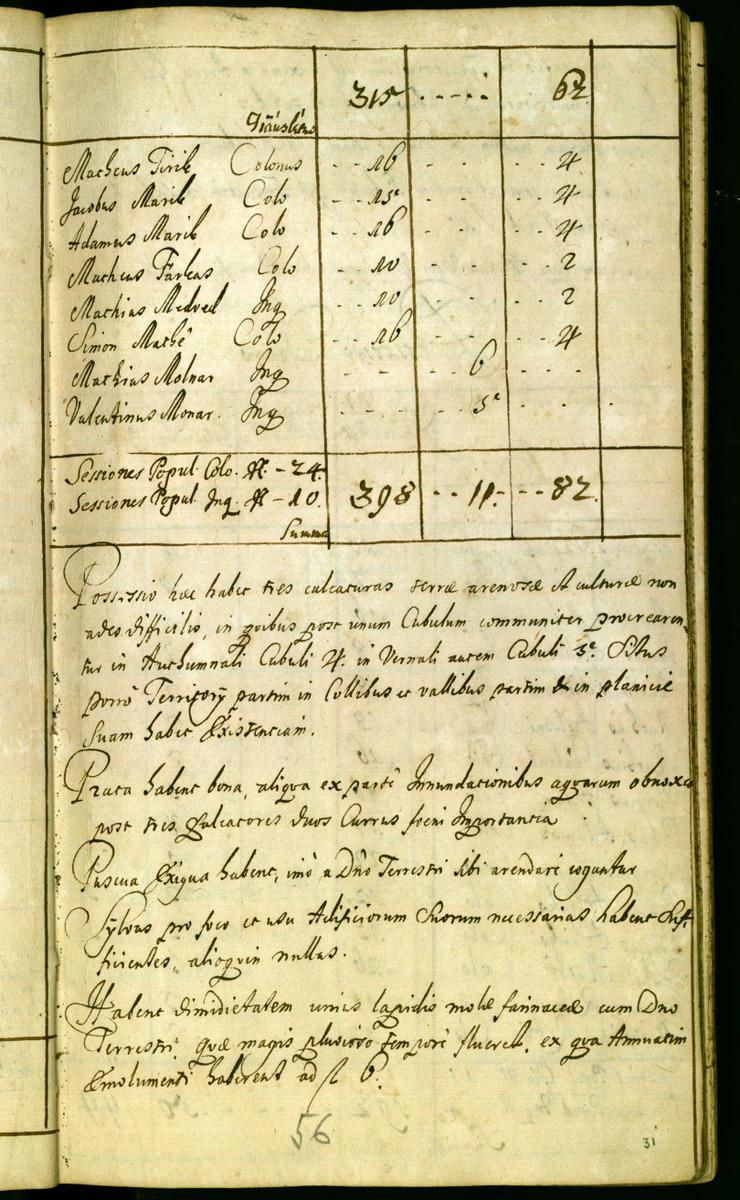 315 . - - - . 62
Translatus
Matheus Tirib Colonus - - 16 - - - - 4
Jacobus Marib Colo - - 15 - - - - 4
Adamus Marib Colo - - 16 - - - - 4
Matheus Farkas Colo - - 10 - - - - 2
Mathias Medved Inq - - 10 - - - - 2
Simon Mathe Colo - - 16 - - - - 4
Mathias Molnar Inq - - - 6 - - -
Valentinus Monar. Inq - - - 5 - - -
Sessiones Popul. Colo. - 24.
Sessiones Popul. Inq. - 10. 398 - - 11. - - 82.
Summa
Possessio hæc habet tres calcaturas terræ arenosæ et culturæ non
adeo difficilis, in quibus post unum Cubulum communiter procrearen-
tur in Authumnali Cubuli 4. in Vernali autem Cubuli 5. Situs
porrò Territorÿ partim in Collibus et vallibus partim & in planicie
suam habet Existentiam.
Prata habent bona, aliqua ex parte Innundationibus aquarum obnoxia
post tres falcatores duos Currus foeni Importantia
Pascua Exigua habent, imò a Dno Terrestri sibi arendare coguntur
Sylvas pro foco et usu Ædificiorum Suorum necessarias habent suf-
ficientes, alioquin nullas.
Habent dimidietatem unius lapidis molæ farinaceæ cum Dno
Terrestri, quæ magis pluvioso tempore flueret, ex qua Annuatim
Emolumenti haberent ad f 6.
56
31